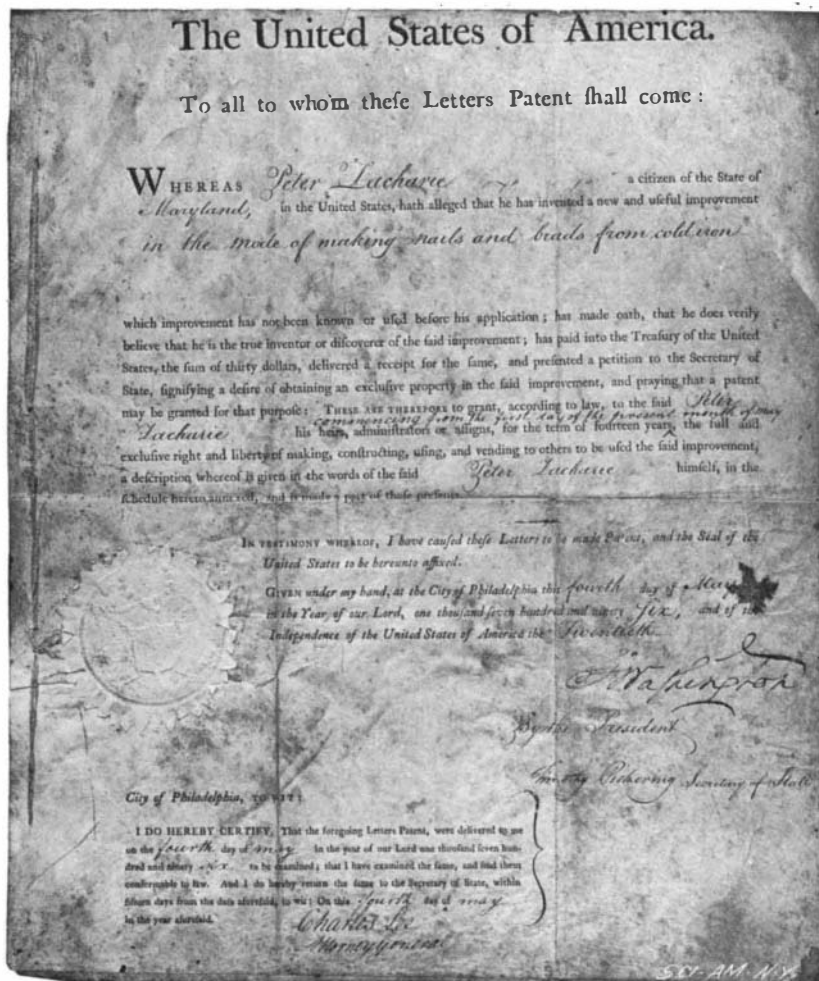 The United States of America.
To all to whom theſe Letters Patent ſhall come:
WHEREAS Peter Zacharie a citizen of the State of
Maryland, in the United States, hath alleged that he has invented a new and uſeful improvement
in the mode of making nails and brads from cold iron
which improvement has not been known or uſed before his application; has made oath, that he does verily
believe that he is the true inventor or diſcoverer of the ſaid improvement; has paid into the Treaſury of the United
States, the ſum of thirty dollars, delivered a receipt for the ſame, and preſented a petition to the Secretary of
State, ſignifying a deſire of obtaining an excluſive property in the ſaid improvement, and praying that a patent
may be granted for that purpoſe: THESE ARE THEREFORE to grant, according to law, to the ſaid Peter
commencing from the first day of the present month of may
Zacharie his heirs, administrators or aſſigns, for the term of fourteen years, the full and
excluſive right and liberty of making, conſtructing, uſing, and vending to others to be uſed the ſaid improvement,
a deſcription whereof is given in the words of the ſaid Peter Zacharie himſelf, in the
ſchedule hereto annexed, and is made a part of theſe preſents.
IN TESTIMONY WHEREOF, I have cauſed theſe Letters to be made Patent, and the Seal of the
United States to be hereunto affixed.
GIVEN under my hand, at the City of Philadelphia this fourth day of May
in the Year of our Lord, one thouſand ſeven hundred and ninety Six, and of the
Independence of the United States of America the Twentieth.
G Washington
By the President
Timothy Pickering Secretary of State
City of Philadelphia, TO WIT:
I DO HEREBY CERTIFY, That the foregoing Letters Patent, were delivered to me
on the fourth day of may In the year of our Lord one thouſand ſeven hun-
dred and ninety six to be examined; that I have examined the ſame, and find them
conformable to law. And I do hereby return the ſame to the Secretary of State, within
fifteen days from the date aforeſaid, to wit: On this fourth day of may
In the year aforeſaid.
Charles Lee
Attorney General
SCI-AM-N.Y.